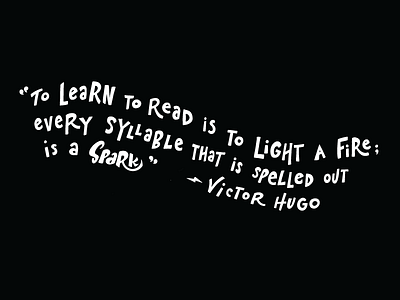 “To LeaRN To Read is To LiGHT A FiRe;
eveRy SyLLaBLE THAT is speLLed ouT
is a SPaRK”
~ VicToR HuGo